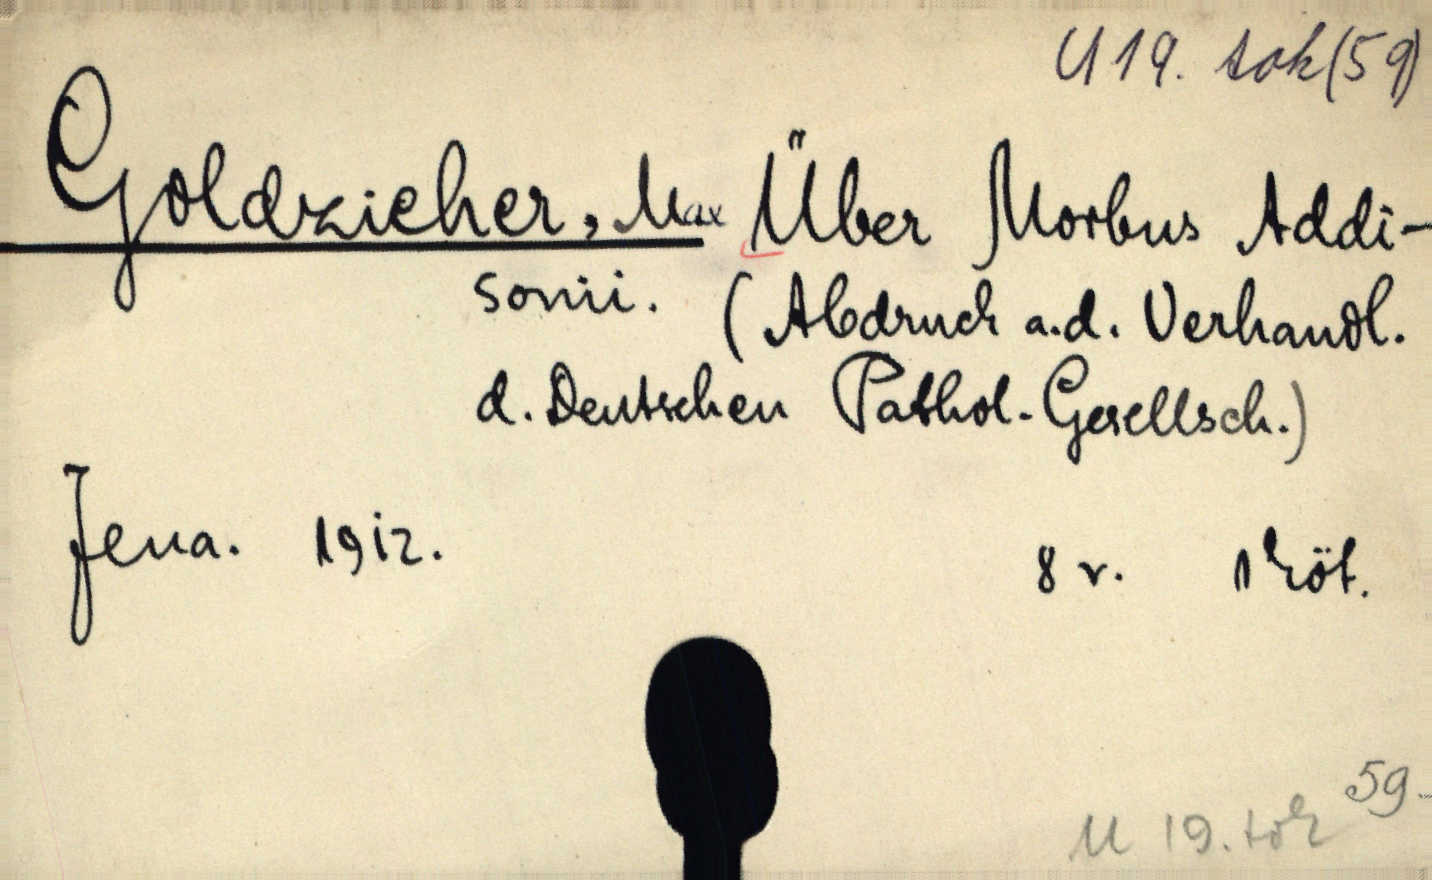 U 19. tok (59)
Goldzieher, Max Über Morbus Addi-
sonii. (Abdruck a.d. Verhandl.
d. Deutschen Pathol. Gesellsch.)
Jena. 1912. 8 r. 1 köt.
59.
U 19. tok